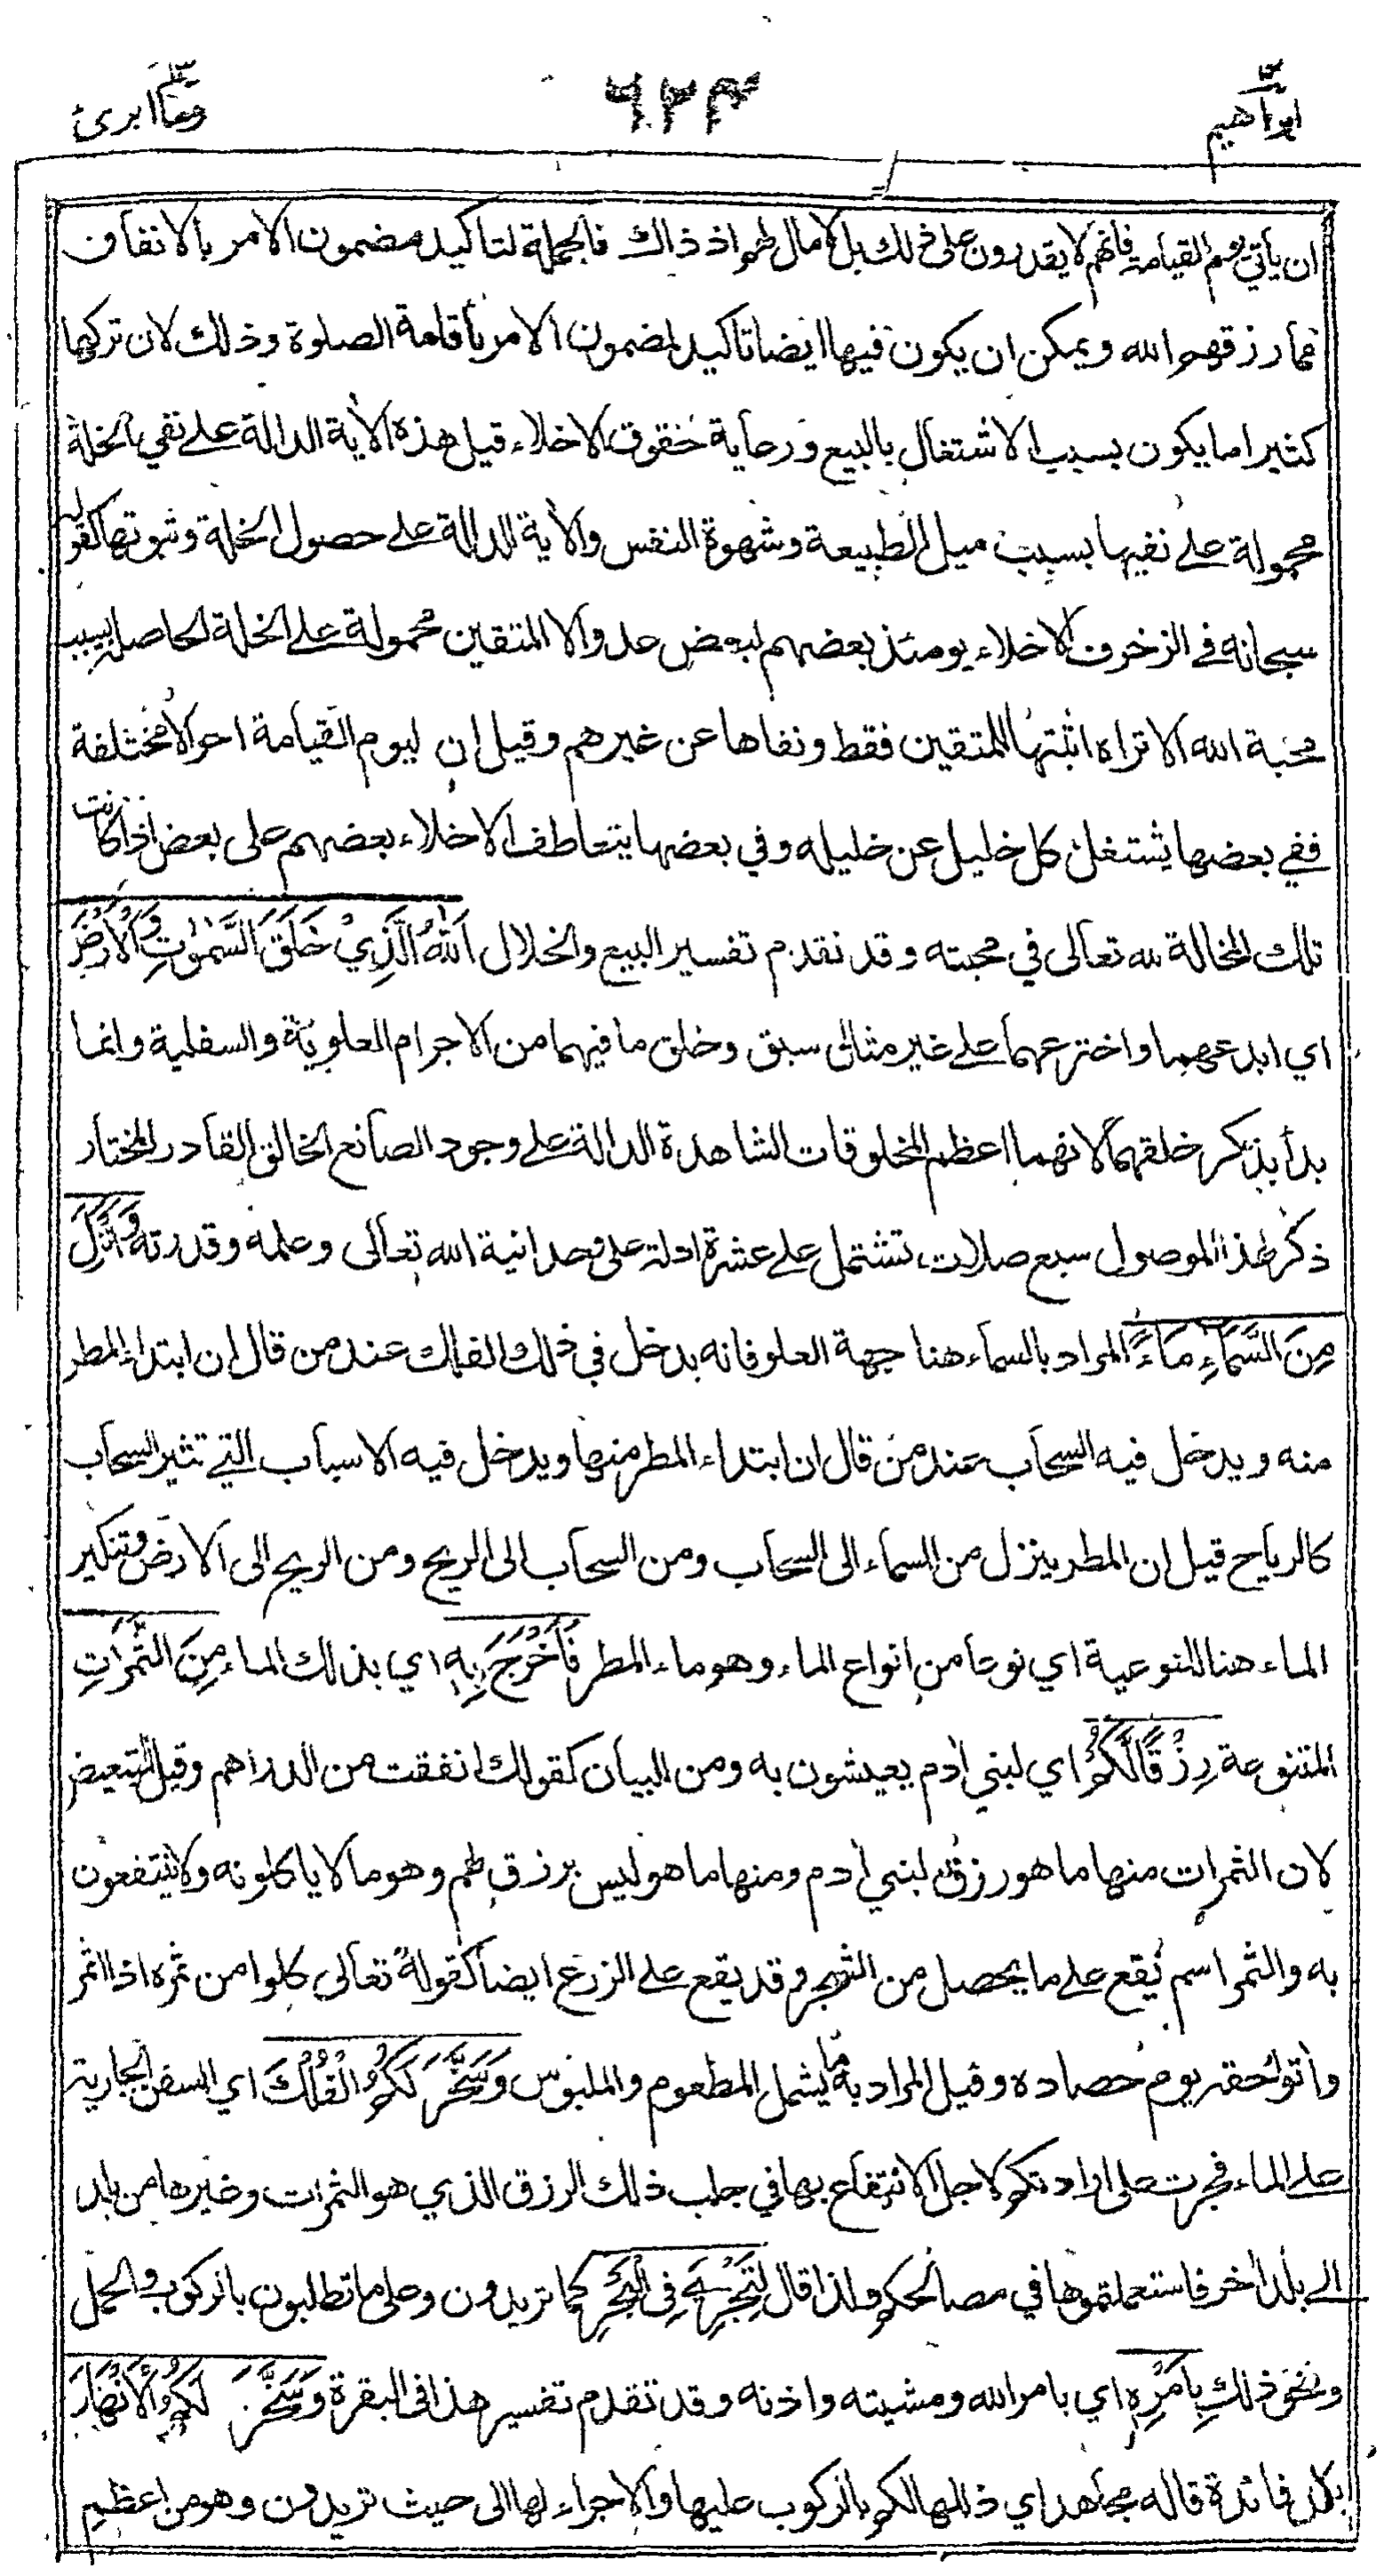 ابراهيم ٦٢٤ وما ابرئ
ان يأتي يوم القيامة فانهم لا يقدرون على ذلك بل لا مال لهم اذ ذاك فالجملة لتاكيد مضمون الامر بالانفاق
مما رزقهم الله ويمكن ان يكون فيها ايضا تاكيد لمضمون الامر باقامة الصلوة وذلك لان تركها
كثيرا ما يكون بسبب الاشتغال بالبيع ورعاية حقوق الاخلاء قيل هذه الأية الدالة على نفي الخلة
محمولة على نفيها بسبب ميل الطبيعة وشهوة النفس والأية الدالة على حصول الخلة وثبوتها كقوله
سبحانه في الزخرف الاخلاء يومئذ بعضهم لبعض عدو الا المتقين محمولة على الخلة الحاصلة بسبب
محبة الله الا تراه اثبتها للمتقين فقط ونفاها عن غيرهم وقيل ان ليوم القيامة احوالا مختلفة
ففي بعضها يشتغل كل خليل عن خليله وفي بعضها يتعاطف الاخلاء بعضهم على بعض اذا كانت
تلك المخالة لله تعالى في محبته وقد تقدم تفسير البيع والخلال اَللّٰهُ الَّذِيْ خَلَقَ السَّمٰوٰتِ وَالْاَرْضَ
اي ابدعهما واخترعهما على غير مثال سبق وخلق ما فيهما من الاجرام العلوية والسفلية وانما
بدأ بذكر خلقهما لانهما اعظم المخلوقات الشاهدة الدالة على وجود الصانع الخالق القادر المختار
ذكر لهذا الموصول سبع صلات تشتمل على عشرة ادلة على وحدانية الله تعالى وعلمه وقدرته وَاَنْزَلَ
مِنَ السَّمَاءِ مَاءً المراد بالسماء هنا جهة العلو فانه يدخل في ذلك الفلك عند من قال ان ابتداء المطر
منه ويدخل فيه السحاب عند من قال ان ابتداء المطر منها ويدخل فيه الاسباب التي تثير السحاب
كالرياح قيل ان المطر ينزل من السماء الى السحاب ومن السحاب الى الريح ومن الريح الى الارض وتنكير
الماء هنا للنوعية اي نوعا من انواع الماء وهو ماء المطر فَاَخْرَجَ بِهٖ اي بذلك الماء مِنَ الثَّمَرٰتِ
المتنوعة رِزْقًا لَّكُمْ اي لبني أدم يعيشون به ومن البيان كقولك انفقت من الدراهم وقيل للتبعيض
لان الثمرات منها ما هو رزق لبني أدم ومنها ما هو ليس برزق لهم وهو ما لا ياكلونه ولا ينتفعون
به والثمر اسم يقع على ما يحصل من الشجر وقد يقع على الزرع ايضا كقوله تعالى كلوا من ثمره اذا اثمر
وأتوا حقه يوم حصاده وقيل المراد به ما يشمل المطعوم والملبوس وَسَخَّرَ لَكُمُ الْفُلْكَ اي السفن الجارية
على الماء فجرت على ارادتكم لاجل الانتفاع بها في جلب ذلك الرزق الذي هو الثمرات وغيرها من بلد
الى بلد أخر فاستعملتموها في مصالحكم ولذا قال لِتَجْرِيَ فِى الْبَحْرِ كما تريدون وعلى ما تطلبون بالركوب والحمل
ونحو ذلك بِاَمْرِهٖ اي بامر الله ومشيته واذنه وقد تقدم تفسير هذا في البقرة وَسَخَّرَ لَكُمُ الْاَنْهٰارَ
بكل فائدة قاله مجاهد اي ذللها لكم بالركوب عليها والاجراء لها الى حيث تريدون وهو من اعظم